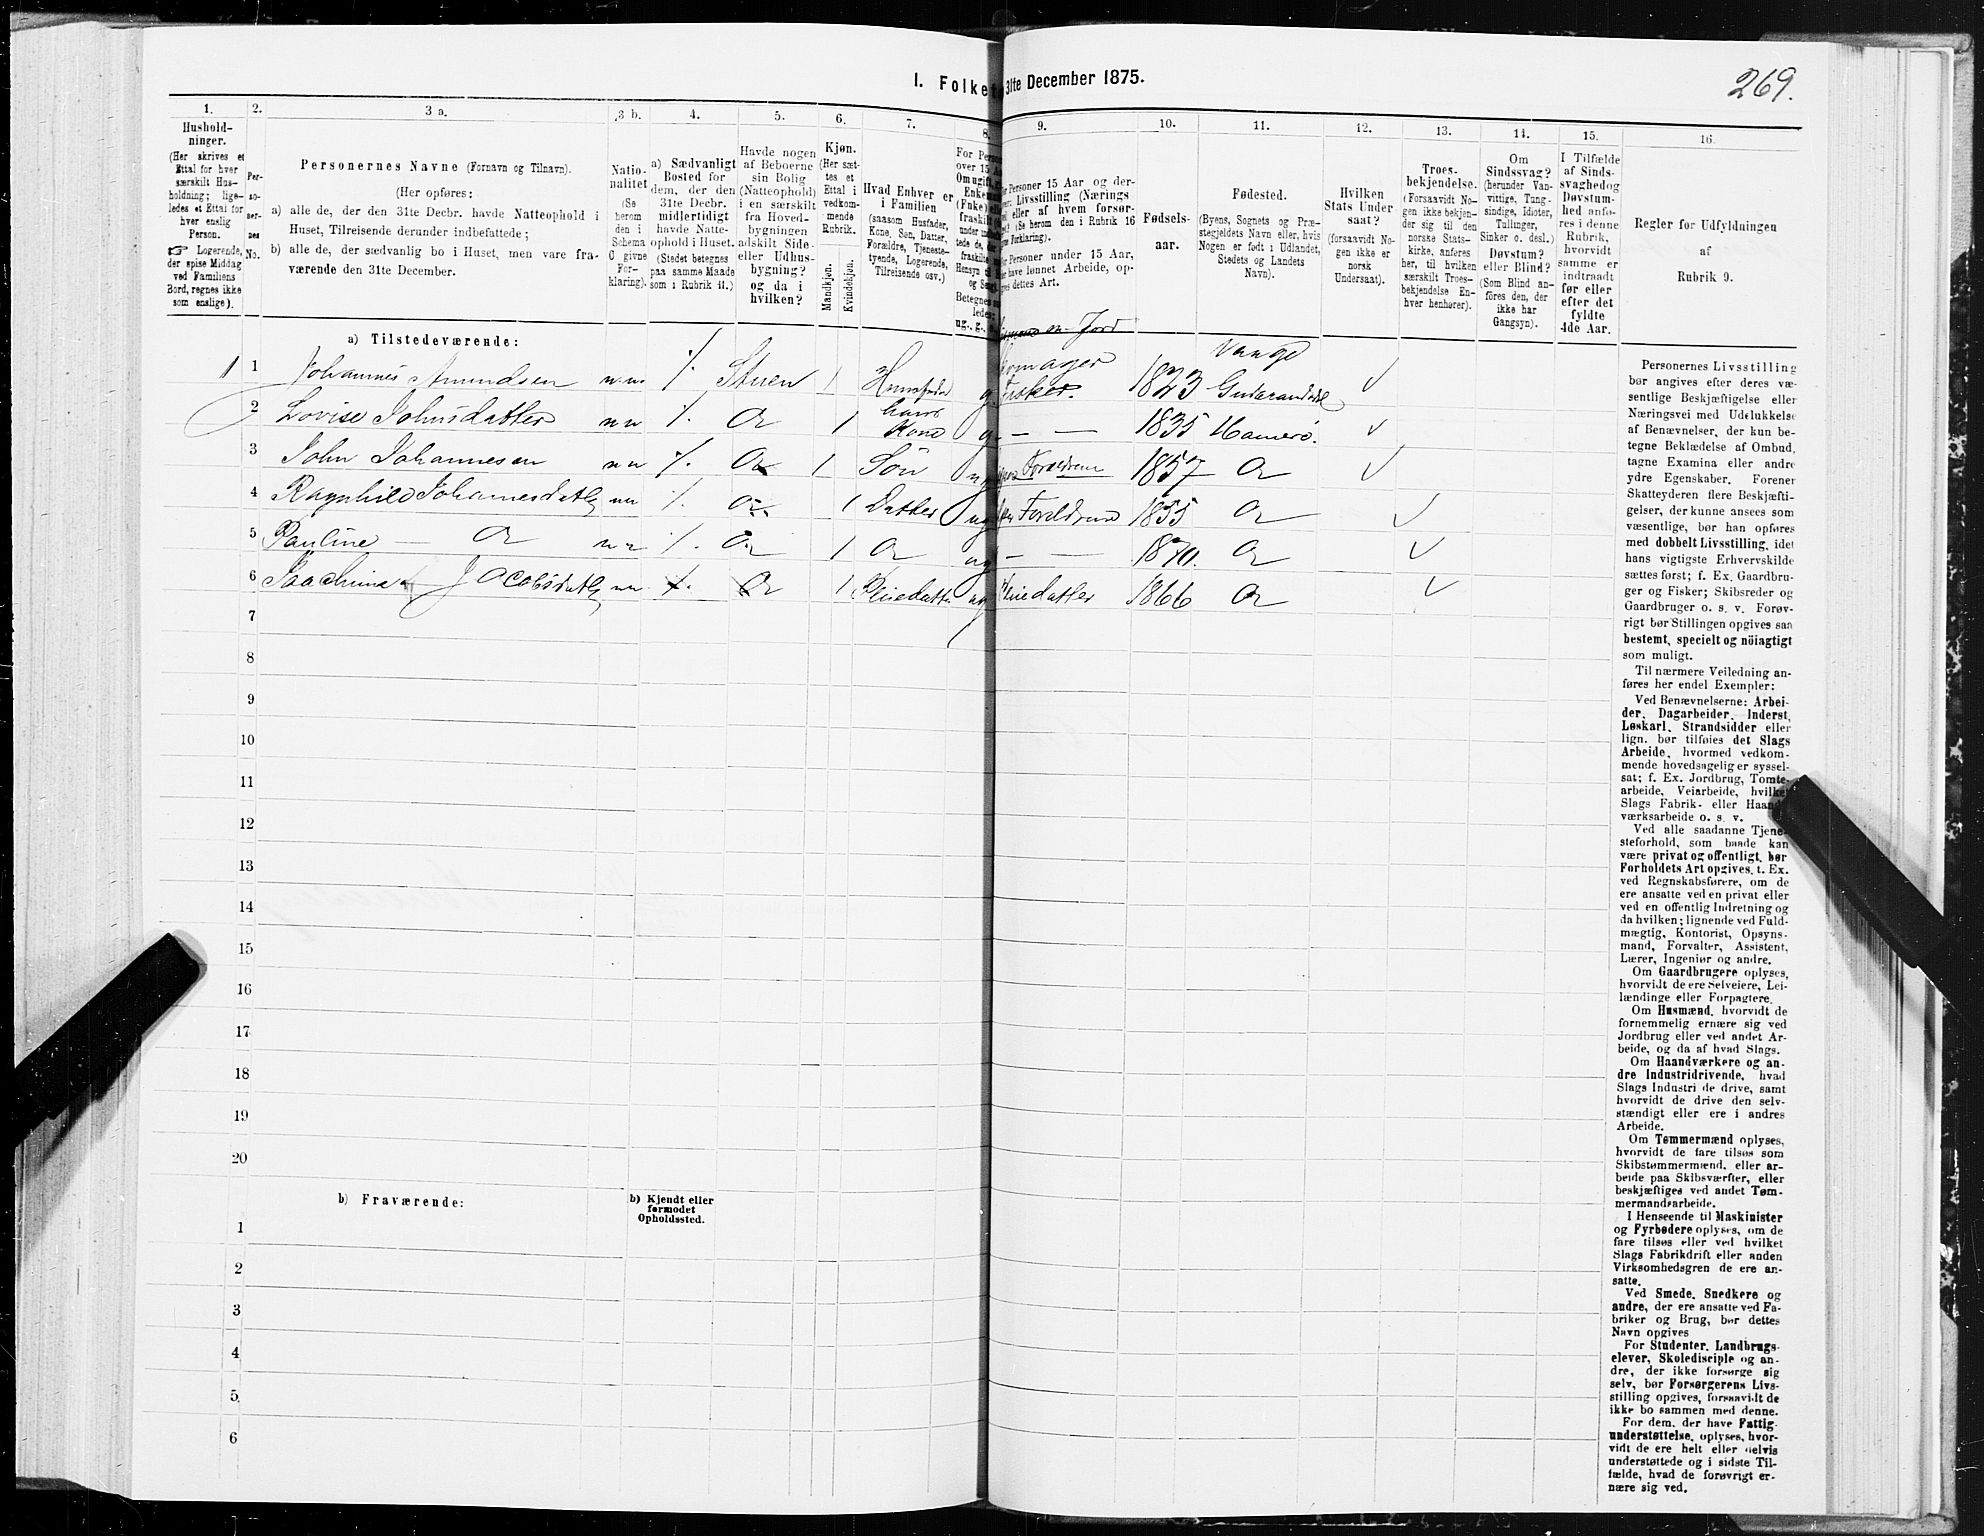 I. Folke 31te December 1875.
269.
1.
Hushold-
ninger.
(Her skrives et
Ettal for hver
særskilt Hus-
holdning; lige-
ledes et Ettal for
hver enslig
Person.
☞ Logerende,
der spise Middag
ved Familiens
Bord, regnes ikke
som enslige).
2.
Per-
so-
ner-
nes
No.
3 a.
Personernes Navne (Fornavn og Tilnavn).
(Her opføres:
a) alle de, der den 31te Decbr. havde Natteophold i
Huset, Tilreisende derunder indbefattede;
b) alle de, der sædvanlig bo i Huset, men vare fra-
værende den 31te December.
3 b.
Natio-
nalitet
(Se
herom
den i
Schema
O givne
For-
klaring).
4.
a) Sædvanligt
Bosted for
dem, der den
31te Decbr.
midlertidigt
havde Natte-
ophold i Huset.
(Stedet betegnes
paa samme Maade
som i Rubrik 11.)
5.
Havde nogen
af Beboerne
sin Bolig
(Natteophold)
i en særskilt
fra Hoved-
bygningen
adskilt Side-
eller Udhus-
bygning?
og da i
hvilken?
6.
Kjøn.
(Her sæt-
tes et
Ettal i
vedkom-
mende
Rubrik.
Mandkjøn.
Kvindekjøn.
7.
Hvad Enhver er
i Familien
(saasom Husfader,
Kone, Søn, Datter,
Forældre, Tjeneste-
tyende, Logerende,
Tilreisende osv.)
8.
For Perso
over 15 A
Om ugift,
Enkem
(Enke) el
fraskilt
ug., g.,
9.
For Personer 15 Aar og der-
Livsstilling (Nærings
vei eller af hvem forsør-
get? (Se herom den i Rubrik 16
Forklaring).
Personer under 15 Aar,
have lønnet Arbeide, op-
dettes Art.
10.
Fødsels-
aar.
11.
Fødested.
(Byens, Sognets og Præ-
stegjeldets Navn eller, hvis
Nogen er født i Udlandet,
Stedets og Landets
Navn).
12.
Hvilken
Stats Under
saat?
(forsaavidt No-
gen ikke er
norsk
Undersaat).
13.
Troes-
bekjendelse.
(Forsaavidt No-
gen ikke bekjen-
der sig til den
norske Stats-
kirke, anføres
her, til hvilken
særskilt Troes-
bekjendelse En-
hver henhører).
14.
Om
Sindssvag?
(herunder Van-
vittige, Tung-
sindige, Idioter,
Tullinger,
Sinker o. desl.)
Døvstum?
eller Blind?
(Som Blind an-
føres den, der
ikke har
Gangsyn).
15.
I Tilfælde
af Sinds-
svaghedog
Døvstum-
hed anfø-
res i denne
Rubrik,
hvorvidt
samme er
indtraadt
før eller
efter det
fyldte
4de Aar.
16.
Regler for Udfyldningen
af
Rubrik 9.
a) Tilstedeværende:
1 1 Johannes Amundsen n.n. ./. Stuen 1 Husfader g. Fisker. 1823 Vange ✓
2 Lovise Johnsdatter nn ./. Do 1 hans Kone g. — — 1835 Hamerö. ✓
3 John Johannesen nn ./. Do 1 Søn ug Forældrene 1857 Do ✓
4 Ragnhild Johannesdatt nn ./. Do 1 Datter ug Foreldrene 1855 Do ✓
5 Pauline — Do nn ./. Do 1 Do ug — — 1870. Do ✓
6 Jacobsdatt nn ./. Do 1 Pleiedatt. ug Pleiedatter 1866 Do ✓
7
8
9
10
11
12
13
14
15
16
17
18
19
20
b) Fraværende:
b) Kjendt eller
formodet
Opholdssted.
1
2
3
4
5
6
Personernes Livsstilling
bør angives efter deres væ-
sentlige Beskjæftigelse eller
Næringsvei med Udelukkelse
af Benævnelser, der kun be-
tegne Beklædelse af Ombud,
tagne Examina eller andre
ydre Egenskaber. Forener
Skatteyderen flere Beskjæfti-
gelser, der kunne ansees som
væsentlige, bør han opføres
med dobbelt Livsstilling, idet
hans vigtigste Erhvervskilde
sættes først; f. Ex. Gaardbru-
ger og Fisker; Skibsreder og
Gaardbruger o. s. v. Forøv-
rigt bør Stillingen opgives saa
bestemt, specielt og nøiagtigt
som muligt.
Til nærmere Veiledning an-
føres her endel Exempler:
Ved Benævnelserne: Arbei-
der, Dagarbeider, Inderst,
Løskarl, Strandsidder eller
lign. bør tilføies det Slags
Arbeide, hvormed vedkom-
mende hovedsagelig er syssel-
sat; f. Ex. Jordbrug, Tomte-
arbeide, Veiarbeide, hvilket
Slags Fabrik- eller Haand-
værksarbeide o. s. v.
Ved alle saadanne Tjene-
steforhold, som baade kan
være privat og offentligt, bør
Forholdets Art opgives, t. Ex.
ved Regnskabsførere, om de
ere ansatte ved en privat eller
ved en offentlig Indretning og
da hvilken; lignende ved Fuld-
mægtig, Kontorist, Opsyns-
mand, Forvalter, Assistent,
Lærer, Ingeniør og andre.
Om Gaardbrugere oplyses,
hvorvidt de ere Selveiere, Lei-
lændinge eller Forpagtere.
Om Husmænd, hvorvidt de
fornemmelig ernære sig ved
Jordbrug eller ved andet Ar-
beide, og da af hvad Slags.
Om Haandværkere og an-
dre Industridrivende, hvad
Slags Industri de drive, samt
hvorvidt de drive den selv-
stændigt eller ere i andres
Arbeide.
Om Tømmermænd oplyses,
hvorvidt de fare tilsøs som
Skibstømmermænd, eller ar-
beide paa Skibsværfter, eller
beskjæftiges ved andet Tøm-
mermandsarbeide.
I Henseende til Maskinister
og Fyrbødere oplyses, om de
fare tilsøs eller ved hvilket
Slags Fabrikdrift eller anden
Virksomhedsgren de ere an-
satte.
Ved Smede, Snedkere og
andre, der ere ansatte ved Fa-
briker og Brug, bør dettes
Navn opgives
For Studenter, Landbrugs-
elever, Skoledisciple og an-
dre, der ikke forsørge sig
selv, bør Forsørgerens Livs-
stilling opgives, forsaavidt de
ikke bo sammen med denne.
For dem, der have Fattig-
understøttelse, oplyses, hvor-
vidt de ere helt eller delvis
understøttede og i sidste Til-
fælde, hvad de forøvrigt er-
nære sig ved.